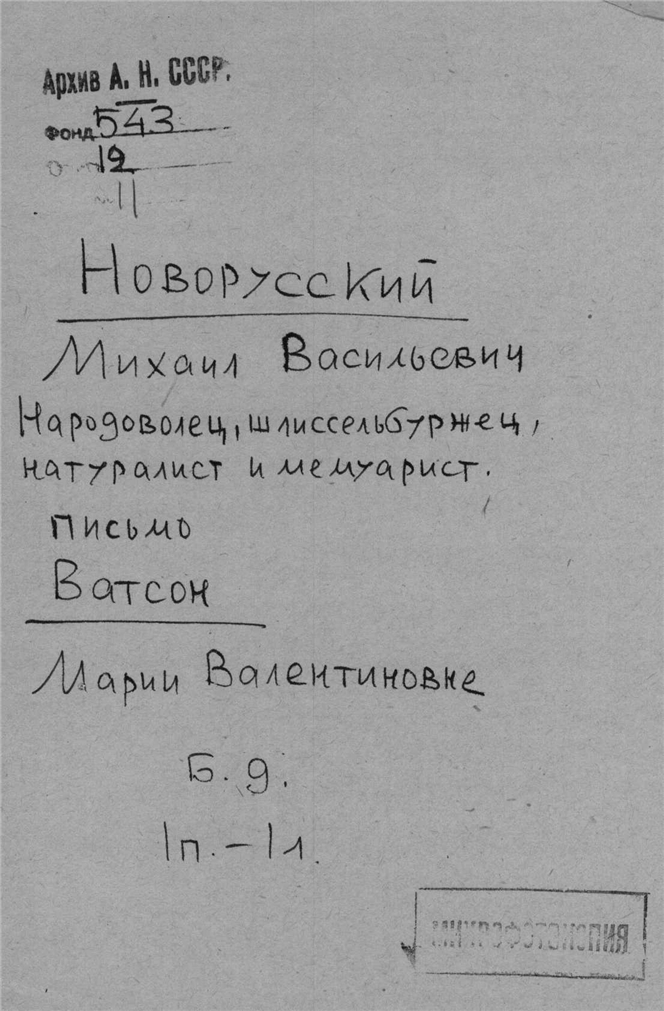 Архив А. Н. СССР.
Фонд 543
12
11
Новорусский
Михаил Васильевич
Народоволец, шлиссельбуржец,
натуралист и мемуарист.
письмо
Ватсон
Марии Валентиновне
Б. д.
1 п. – 1 л.